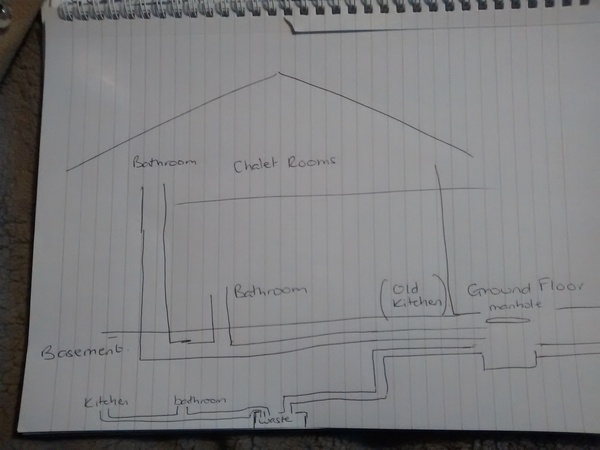 Bathroom Chalet Rooms
Bathroom
(Old Kitchen)
Ground Floor
manhole
Basement
Kitchen bathroom
waste